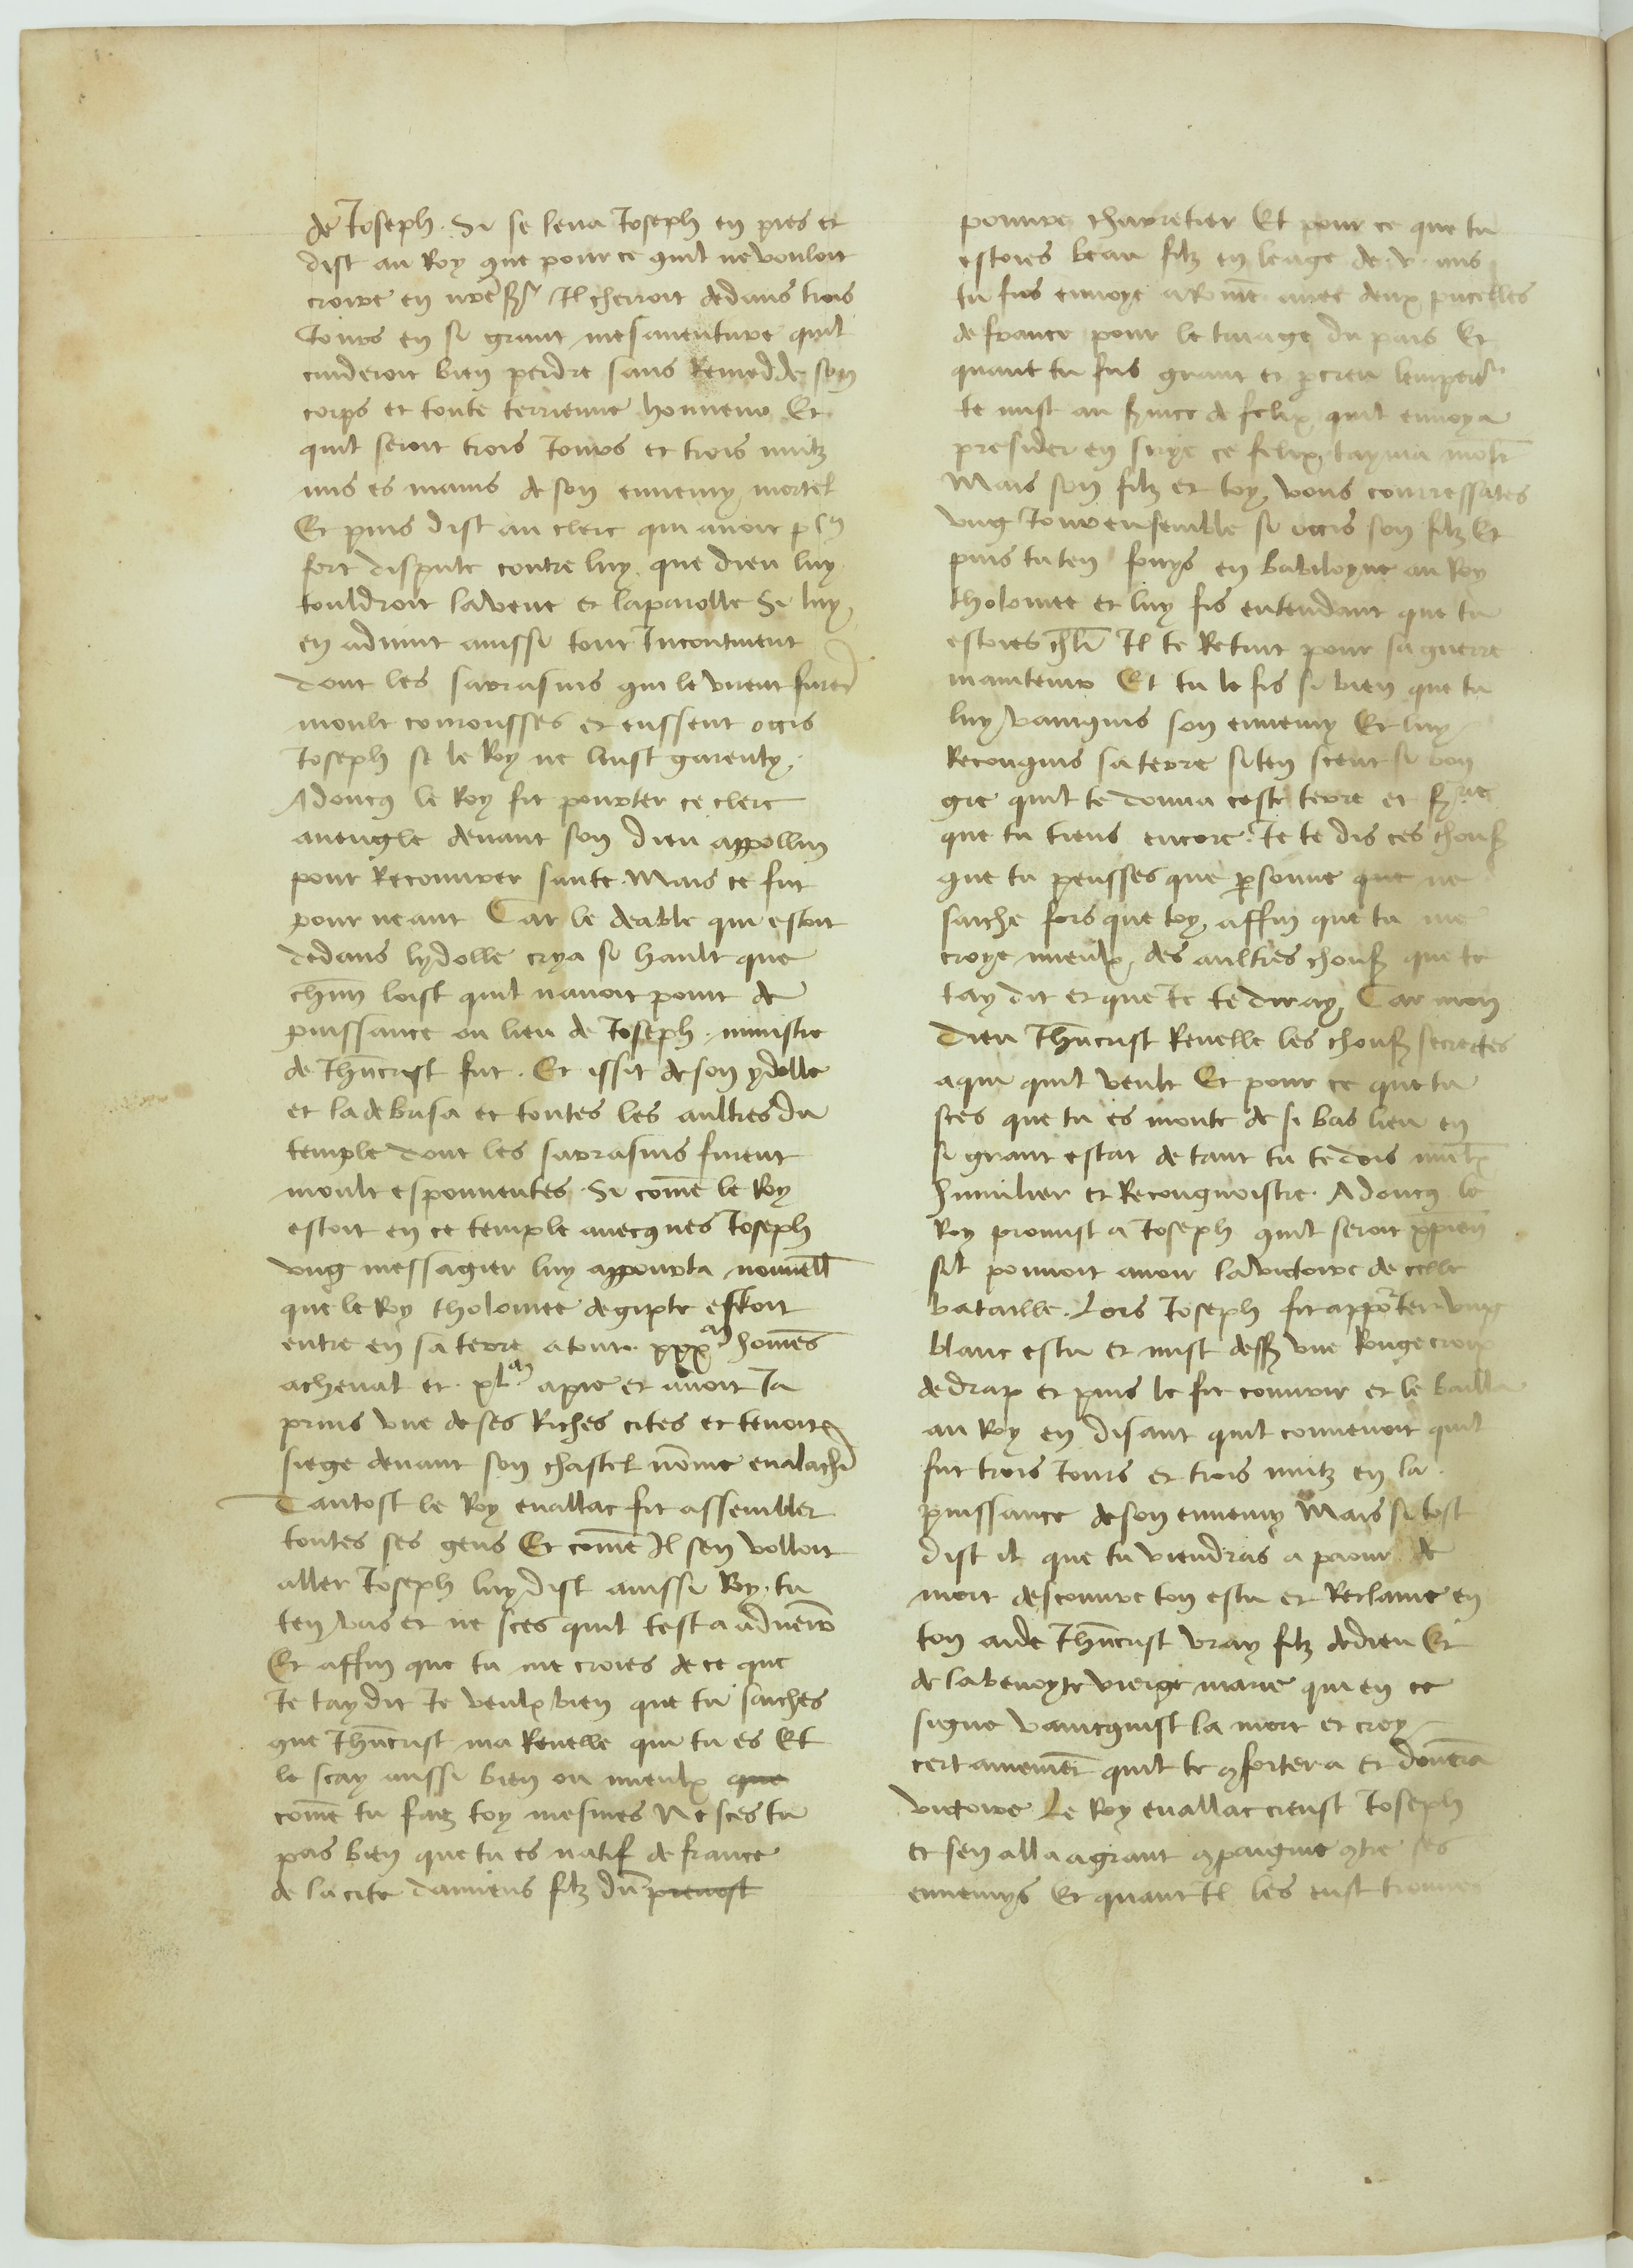 de Joseph. Si se leua Joseph en pies et
dist au Roy que pource quil ne vouloit
croire en nr̄e sr Il cherroit dedans trois
Jours en si grant mesauenture quil
cuideroit bien perdre sans Remedde son
corps et toute terrienne honneur Et
quil seroit trois Jours et trois nuitz
mis es mains de son ennemy mortel
Et puis dist au clerc qui auoit
fort dispute contre luy que dieu luy
touldroit la veue et la parolle Si luy
en aduint aussi tout Incontinent
dont les sarrasins qui le virent furēt
moult courousses et eussent occis
Joseph se le Roy ne leust garenty.
Adoncq le Roy fit pourter ce clerc
aueugle deuant son dieu appollin
pour Recouurer sante. Mais ce fut
pour neant Car le deable qui estoit
dedans lydolle crya si hault que
chūn loist quil nauoit point de
puissance ou lieu de Joseph. ministre
de Jhūcrist fut. Et issit de son ydolle
et la debrisa et toutes les aultres du
temple dont les sarrasins furent
moult espouuentes. Si cōme le Roy
estoit en ce temple auecques Joseph
vng messagier luy appourta nouuell
que le Roy tholomee degipte estoit
entre en sa terre atout. xxxm homēs
acheual et. xlm apie et auoit Ja
prins vne de ses Riches cites et tenoit
siege deuant son chastel nōme eualachī
Tantost le Roy euallac fit assembler
toutes ses gens Et cōme Il sen volloit
aller Joseph luy dist aussi Roy. tu
ten vas et ne sces quil test a aduenir
Et affin que tu me croies de ce que
Je tay dit Je veulx bien que tu saiches
que Jhūcrist ma Reuelle qui tu es Et
le scay aussi bien ou mieulx que
cōme tu faiz toy mesmes Ne sces tu
pas bien que tu es natif de france
de la cite damiens filz dū preuost
pouure charretier Et pour ce que tu
estoies beau filz en leage de. v. ans
tu fus enuoye a Rōme auec deux pucelles
de france pour le truage du pais Et
quant tu fus grant et ꝑcreu lemperer
te mist au ẜuice de felix quil enuoya
presider en sirye ce felix tayma moult
Mais son filz et toy vous courressates
vng Jour ensemble si occis son filz Et
puis tu ten fouys en babiloyne au Roy
tholomee et luy fis entendant que tu
estoies chlr̄ Il te Retint pour sa guerre
maintenir Et tu le fis si bien que tu
luy vainquis son ennemy Et luy
Reconquis sa terre si ten sceut si bon
gre quil te donna ceste terre et
que tu tiens encore. Je te dis ces chouses
que tu pensses que ꝑsonne que ne
saiche fors que toy affin que tu me
croye mieulx des aultres chouses que Je
tay dit et que Je te diray Car mon
dieu Jhūcrist Reuelle les chouses secrettes
aqui quil veult Et pour ce que tu
sces que tu es monte de si bas lieu en
si grant estat de tant tu te dois mieulx
humilier et Recongnoistre. Adoncq le
Roy promist a Joseph quil seroit xp̄ien
sil pouuoit auoir la victoire de celle
bataille. Lors Joseph fit apporter vng
blanc escu et mist dess9 vne Rouge croix
de drap et puis le fit couurir et le bailla
au Roy en disant quil conuenoit quil
fut trois Jours et trois nuitz en la
puissance de son ennemy Mais si tost
dist il que tu viendras a paour de
mort descouure ton escu et Reclame en
ton aide Jhūcrist vray filz de dieu Et
de la benoyte vierge marie qui en ce
signe vaincquist la mort et croy
certainemēt quil te ꝯfortera et dōnera
victoire Le Roy euallac creust Joseph
et sen alla a grant ꝯpaignie ꝯtre ses
ennemys Et quant Il les eust trouues